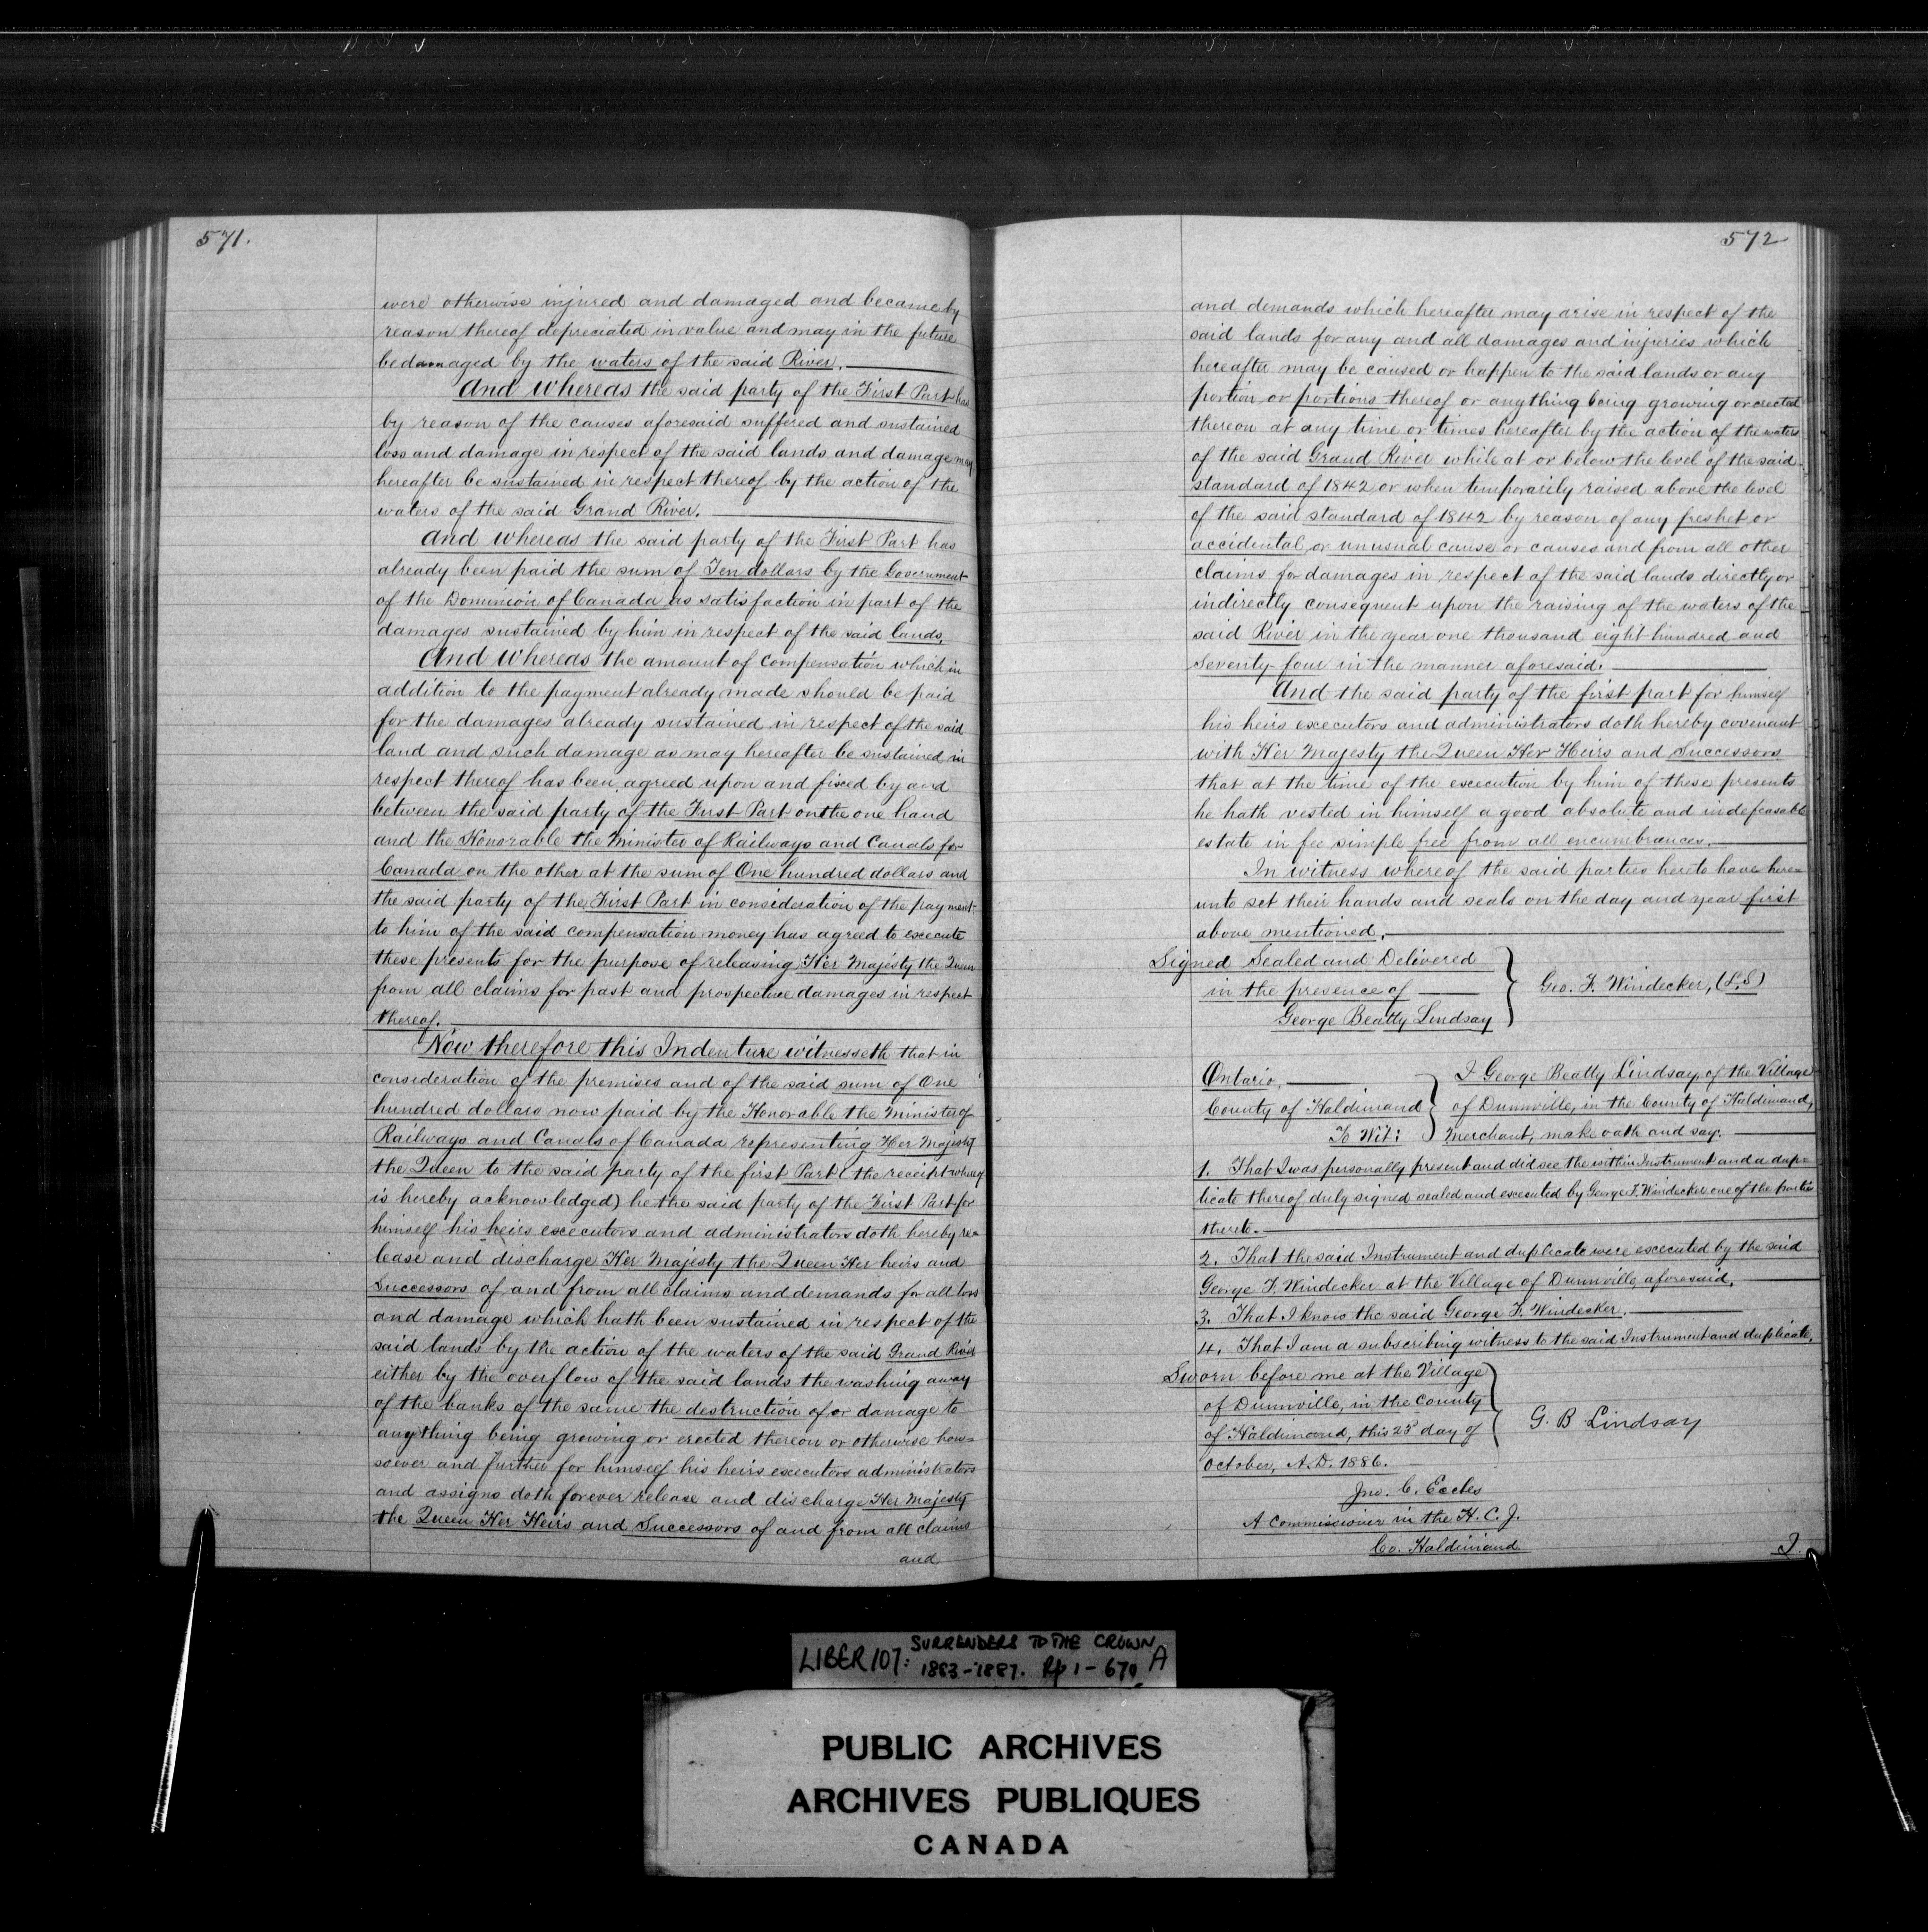 571.
were otherwise injured and damaged and became by
reason thereof depreciated in value and may in the future
be damaged by the waters of the said River.
And Whereas the said party of the First Part has
by reason of the causes aforesaid suffered and sustained
loss and damage in respect of the said lands and damage may
hereafter be sustained in respect thereof by the action of the
waters of the said Grand River.
And whereas the said party of the First Part has
already been paid the sum of Ten dollars by the Government
of the Dominion of Canada as satisfaction in part of the
damages sustained by him in respect of the said lands,
And Whereas the amount of compensation which in
addition to the payment already made should be paid
for the damages already sustained in respect of the said
land and such damage as may hereafter be sustained in
respect thereof has been agreed upon and fixed by and
between the said party of the First Part on the one hand
and the Honorable the Minister of Railways and Canals for
Canada on the other at the sum of One hundred dollars and
the said party of the First Part in consideration of the payment
to him of the said compensation money has agreed to excecute
these presents for the purpose of releasing Her Majesty the Queen
from all claims for past and prospective damages in respect
thereof.
Now therefore this Indenture witnesseth that in
consideration of the premises and of the said sum of One
hundred dollars now paid by the Honorable the Minister of
Railways and Canals of Canada representing Her Majesty
the Queen to the said party of the first Part (the receipt whereof
is hereby acknowledged) he the said party of the First Part for
himself his heirs excecutors and administrators doth hereby re=
lease and discharge Her Majesty the Queen Her heirs and
Successors of and from all claims and demands for all loss
and damage which hath been sustained in respect of the
said lands by the action of the waters of the said Grand River
either by the overflow of the said lands the washing away
of the banks of the same the destruction of or damage to
anything being growing or erected thereon or otherwise how=
soever and further for himself his heirs excecutors administrators
and assigns doth forever release and discharge Her Majesty
the Queen Her Heirs and Successors of and from all claims
and
572
and demands which hereafter may arise in respect of the
said lands for any and all damages and injuries which
hereafter may be caused or happen to the said lands or any
portion or portions thereof or anything being growing or erected
thereon at any time or times hereafter by the action of the waters
of the said Grand River while at or below the level of the said
standard of 1842 or when temporarily raised above the level
of the said standard of 1842 by reason of any freshet or
accidental or unusual cause or causes and from all other
claims for damages in respect of the said lands directly or
indirectly consequent upon the raising of the waters of the
said River in the year one thousand eight hundred and
Seventy four in the manner aforesaid.
And the said party of the first part for himself
his heirs excecutors and administrators doth hereby covenant
with Her Majesty the Queen Her Heirs and Successors
that at the time of the excecution by him of these presents
he hath vested in himself a good absolute and indefeasable
estate in fee simple free from all encumbrances.
In witness whereof the said parties hereto have here=
unto set their hands and seals on the day and year first
above mentioned.
Signed Sealed and Delivered
in the presence of
George Beatty Lindsay
Geo. F. Windecker, (L.S)
Ontario,
County of Haldimand
To Wit:
I George Beatty Lindsay, of the Village
of Dunnville, in the County of Haldimand,
Merchant, make oath and say.
1. That I was personally present and did see the within Instrument and a dup=
licate thereof duly signed sealed and excecuted by George F. Windecker one of the parties
thereto.
2. That the said Instrument and duplicate were excecuted by the said
George F. Windecker at the Village of Dunnville, aforesaid.
3. That I know the said George F. Windecker.
4. That I am a subscribing witness to the said Instrument and duplicate.
Sworn before me at the Village
of Dunnville, in the County
of Haldimand, this 25 day of
October, A.D. 1886.
G. B Lindsay
Jno. C. Eccles
A Commissioner in the H. C. J.
Co. Haldimand
I.
LIBER 107: SURRENDERS TO THE CROWN A
1883-1887. Pp 1-670
PUBLIC ARCHIVES
ARCHIVES PUBLIQUES
CANADA